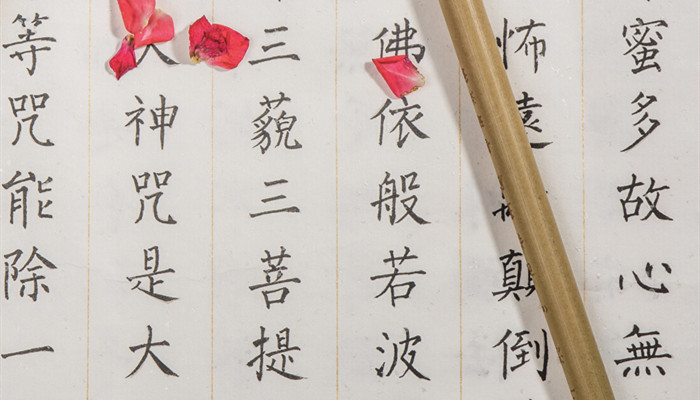 蜜多故心無
怖遠顛倒
佛依般若波
三藐三菩提
神咒是大
等咒能除一